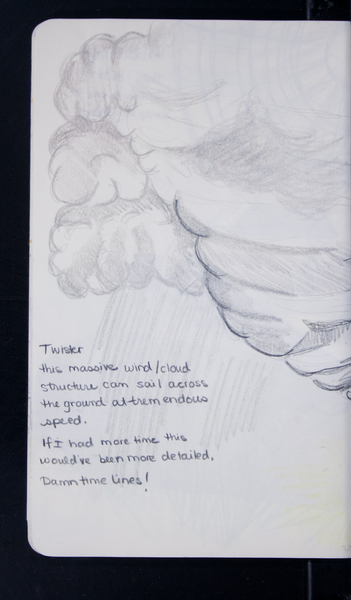 Twister
this massive wind/cloud
structure can sail across
the ground at tremendous
speed.
If I had more time this
would've been more detailed.
Damn time lines!